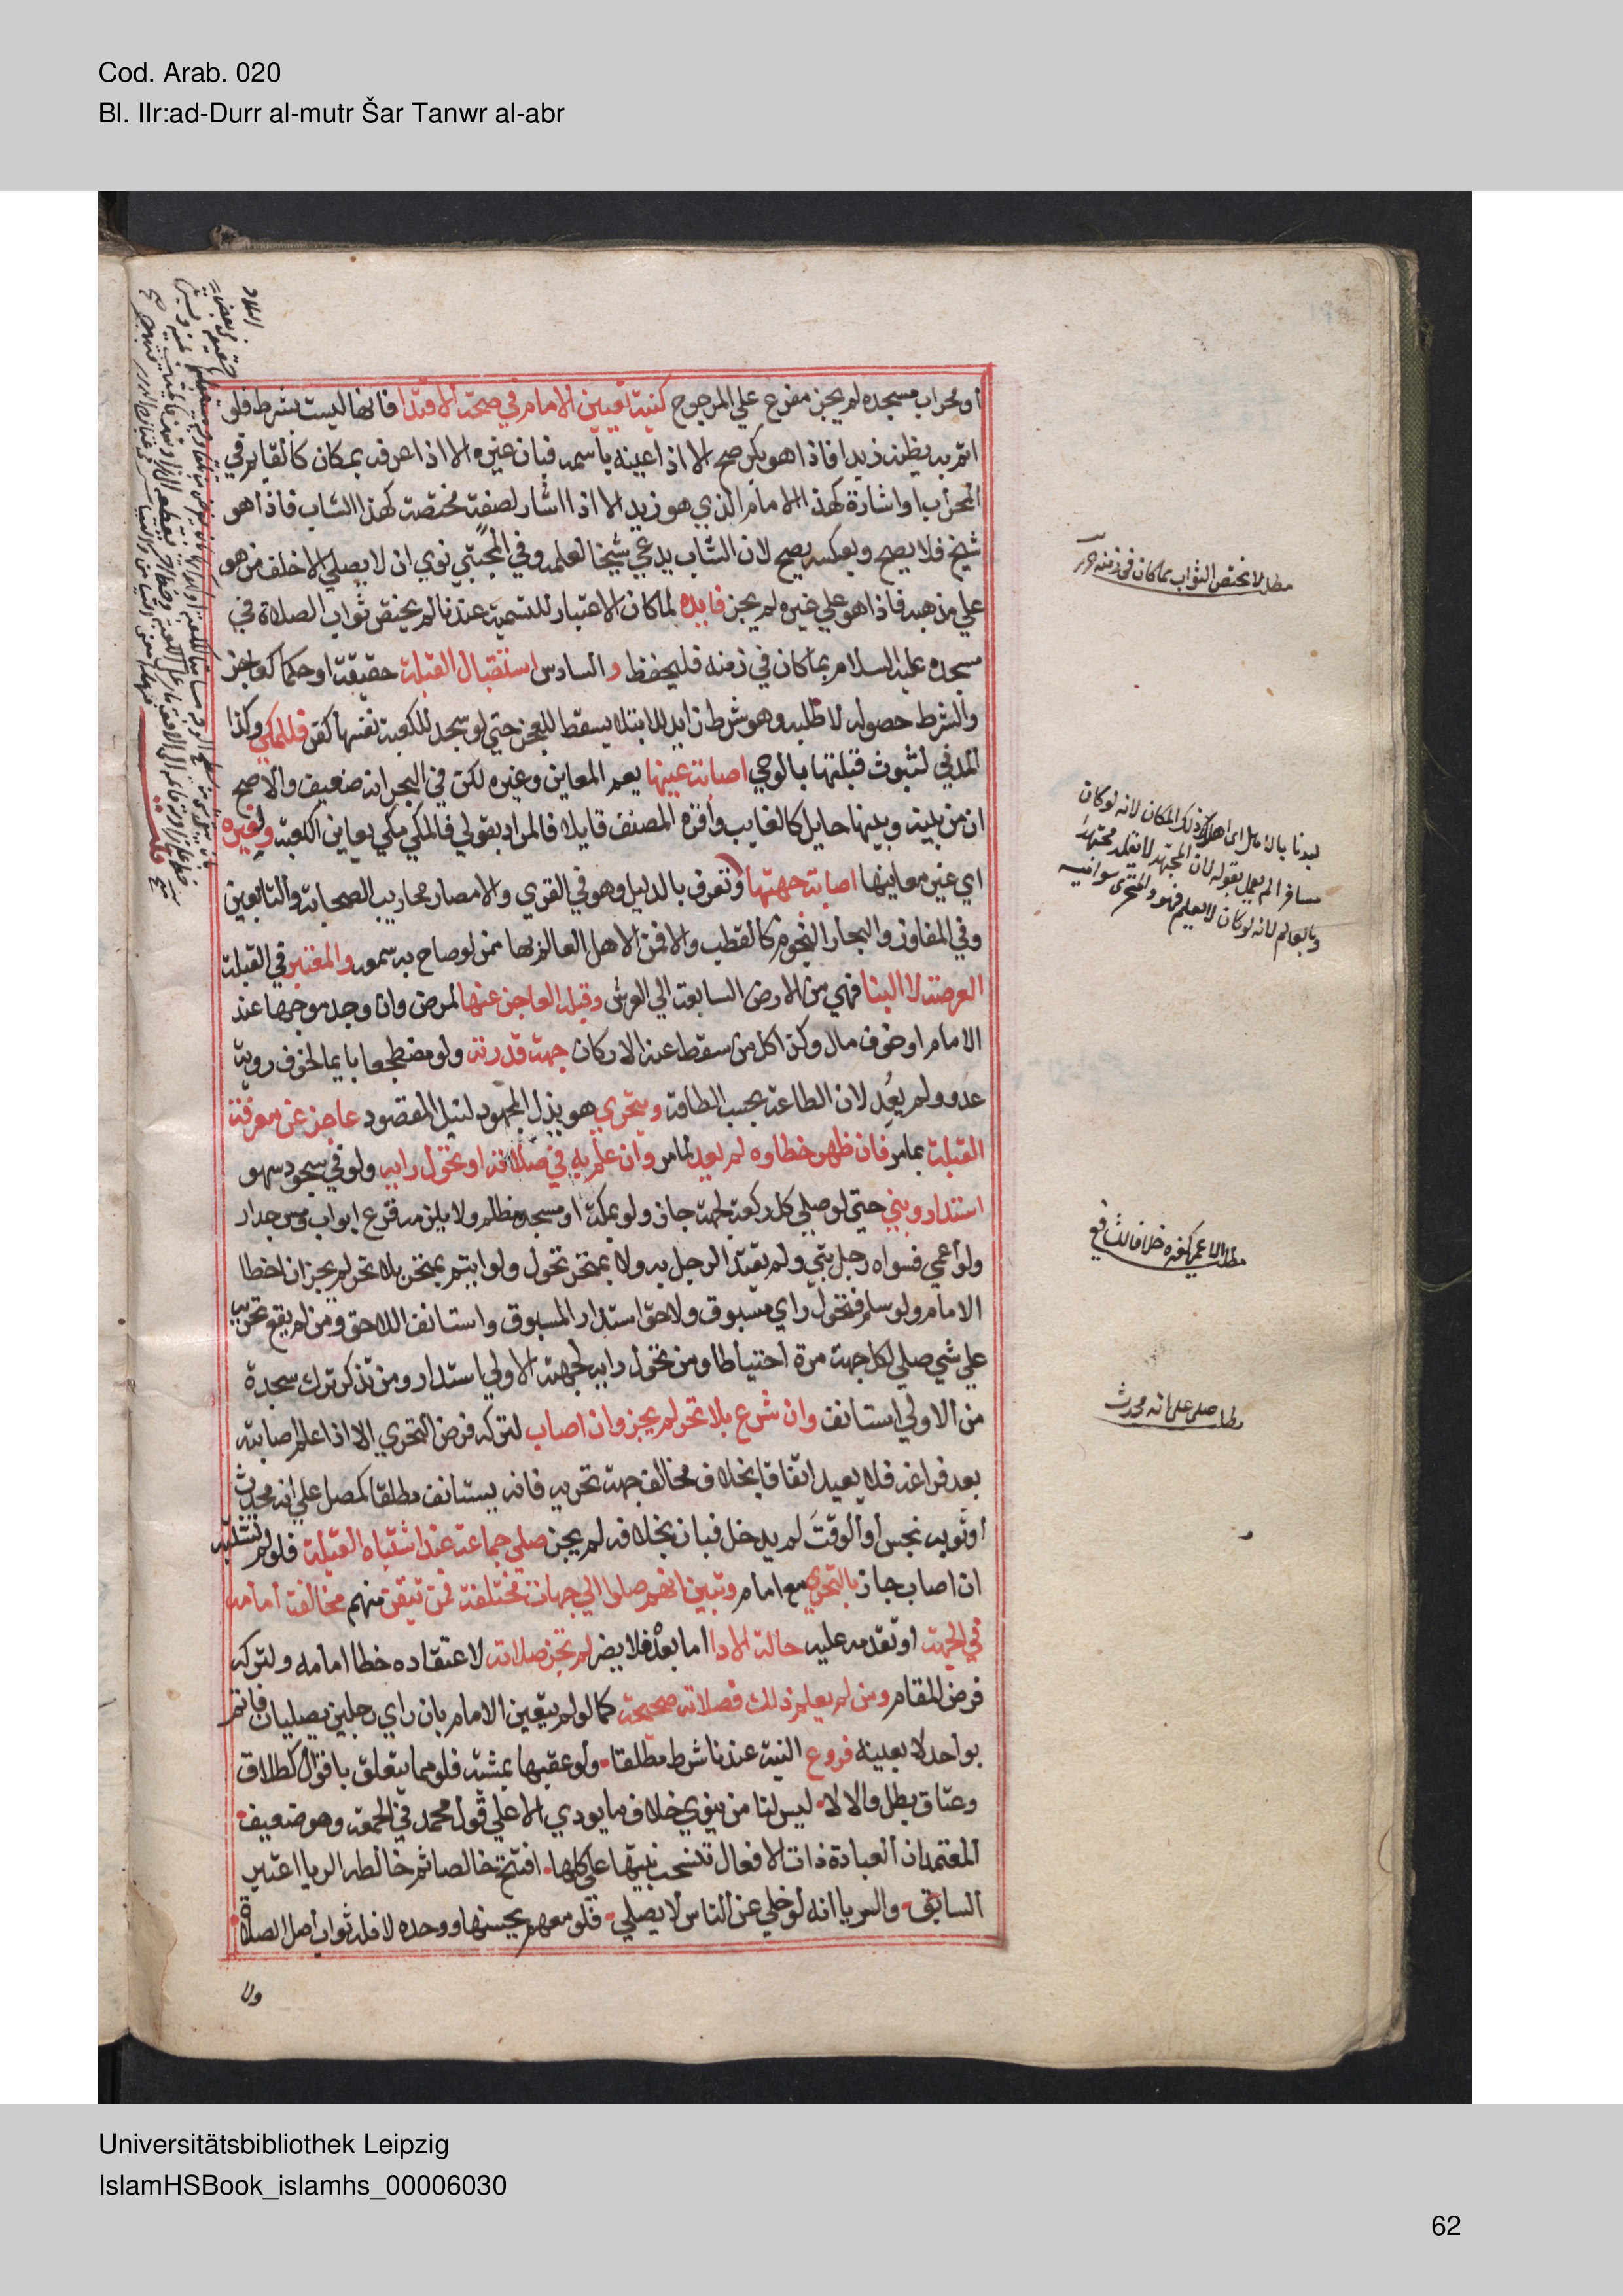 Cod. Arab. 020
Bl. IIr:ad-Durr al-mutr Šar Tanwr al-abr
او محراب مسجده لم يجز مفرع علي المرجوح كنية تعيين الامام في صحة الاقتدا فانها ليست بشرط فلو
ائتم به يظنه زيدا فاذا هو بكر صح الا اذا عينه باسمه فبان غيره الا اذا عرفه بمكان كالقايم في
المحراب او اشارة كهذا الامام الذي هو زيد الا اذا اشار لصفة مختصة كهذا الشاب فاذا هو
شيخ فلا يصح وبعكسه يصح لان الشاب يدعي شيخا لعلمه وفي المجتبي نوي ان لا يصلي الا خلف من هو
علي مذهبه فاذا هو علي غيره لم يجز فايده لما كان الاعتبار للتسمية عندنا لم يختص ثواب الصلاة في
مسجده عليه السلام بما كان في زمنه فليحفظ والسادس استقبال القبلة حقيقة او حكما كعاجز
والشرط حصوله لا طلبه وهو شرط زايد للابتلا يسقط للعجز حتي لو سجد للكعبة نفسها كفر فللمكي وكذا
المدني لثبوت قبلتها بالوحي اصابة عينها يعم المعاين وغيره لكن في البحر انه ضعيف والاصح
ان من بينه وبينها حايل كالغايب واقره المصنف قايلا فالمراد بقولي فللمكي مكي يعاين الكعبة ولغيره
اي غير معاينها اصابة جهتها وتعرف بالدليل وهو في القري والامصار محاريب الصحابة والتابعين
وفي المفاوز والبحار النجوم كالقطب والا فمن الاهل العالم بها ممن لو صاح به سمعه والمعتبر في القبلة
العرصة لا البنا فهي من الارض السابعة الي العرش وقبلة العاجز عنها لمرض وان وجد موجها عند
الامام او خوف مال وكذا كل من سقط عنه الاركان جهة قدرته ولو مضطجعا بايما لخوف روية
عدو ولم يعد لان الطاعة بحسب الطاقة ويتحري هو بذل المجهود لنيل المقصود عاجز عن معرفة
القبلة بما مر فان ظهر خطاوه لم يعد لما مر وان علم به في صلاته او تحول رايه ولو في سجود سهو
استدار وبني حتي لو صلي كل ركعة لجهة جاز ولو بمكة او مسجد مظلم ولا يلزمه قرع ابواب ومس جدار
ولو اعمي فسواه رجل بني ولم يقتد الرجل به ولا بمتحر تحول ولو ايتم بمتحر بلا تحر لم يجز ان اخطا
الامام ولو سلم فتحول راي مسبوق ولاحق استدار المسبوق واستانف اللاحق ومن لم يقع تحريه
علي شي صلي لكل جهة مرة احتياطا ومن تحول رايه لجهته الاولي استدار ومن تذكر ترك سجدة
من الاولي استانف وان شرع بلا تحر لم يجز وان اصاب لتركه فرض التحري الا اذا علم اصابته
بعد فراغه فلا يعيد اتفاقا بخلاف مخالف جهة تحريه فانه يستانف مطلقا كمصل علي انه محدث
او ثوبه نجس او الوقت لم يدخل فبان بخلافه لم يجز صلي جماعة عند اشتباه القبلة فلو لم تشتبه
ان اصاب جاز بالتحري مع امام وتبين انهم صلوا الي جهات مختلفة فمن تيقن منهم مخالفة امامه
في الجهة او تقدمه عليه حالة الادا اما بعده فلا يضر لم تجز صلاته لاعتقاده خطا امامه ولتركه
فرض المقام ومن لم يعلم ذلك فصلاته صحيحة كما لو لم يتعين الامام بان راي رجلين يصليان فايتم
بواحد لا بعينه فروع النية عندنا شرط مطلقا ولو عقبها بمشية فلو مما يتعلق باقوال كطلاق
وعتاق بطل والا لا ليس لنا من ينوي خلاف ما يودي الا علي قول محمد في الجمعة وهو ضعيف
المعتمد ان العبادة ذات الافعال تنسحب نيتها علي كلها افتتح خالصا ثم خالطه الريا اعتبر
السابق والريا انه لو خلي عن الناس لا يصلي فلو معهم يحسنها ووحده لا فله ثواب اصل الصلاة
ولا
مطلب لا يختص الثواب بما كان في زمنه
مسافرا لم يعمل بقوله لان المجتهد لا يقلد مجتهدا
مطلب الاعمي كغيره خلافا للشافعي
مطلب صلي علي انه محدث
Universitätsbibliothek Leipzig
IslamHSBook_islamhs_00006030
62